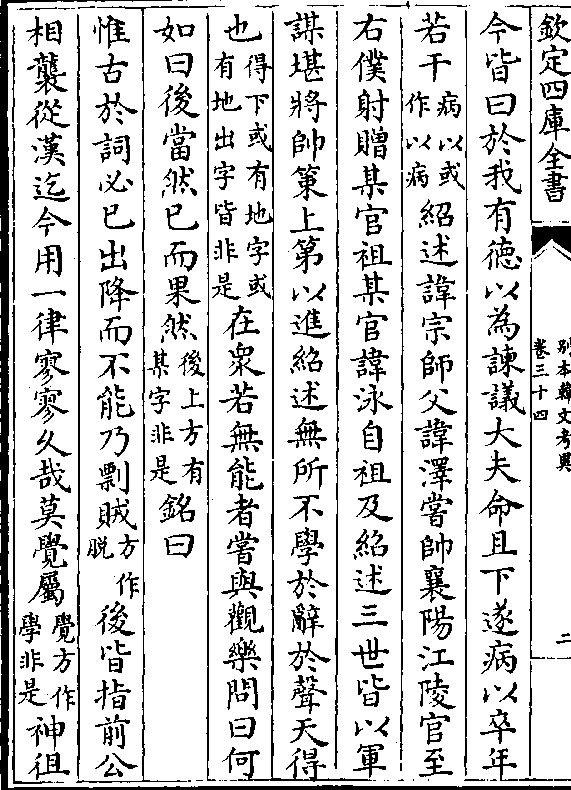 欽定四庫全書
別本韓文考異
卷三十四
二
今皆曰於我有德以為諫議大夫命且下遂病以卒年
若干病以或作以病紹述諱宗師父諱澤嘗帥襄陽江陵官至
右僕射贈某官祖某官諱泳自祖及紹述三世皆以軍
謀堪將帥策上第以進紹述無所不學於辭於聲天得
也得下或有地字或有地出字皆非是在衆若無能者嘗與觀樂問曰何
如曰後當然已而果然後上方有某字非是銘曰
惟古於詞必已出降而不能乃剽賊方作脱後皆指前公
相襲從漢迄今用一律寥寥久哉莫覺屬覺方作學非是神徂